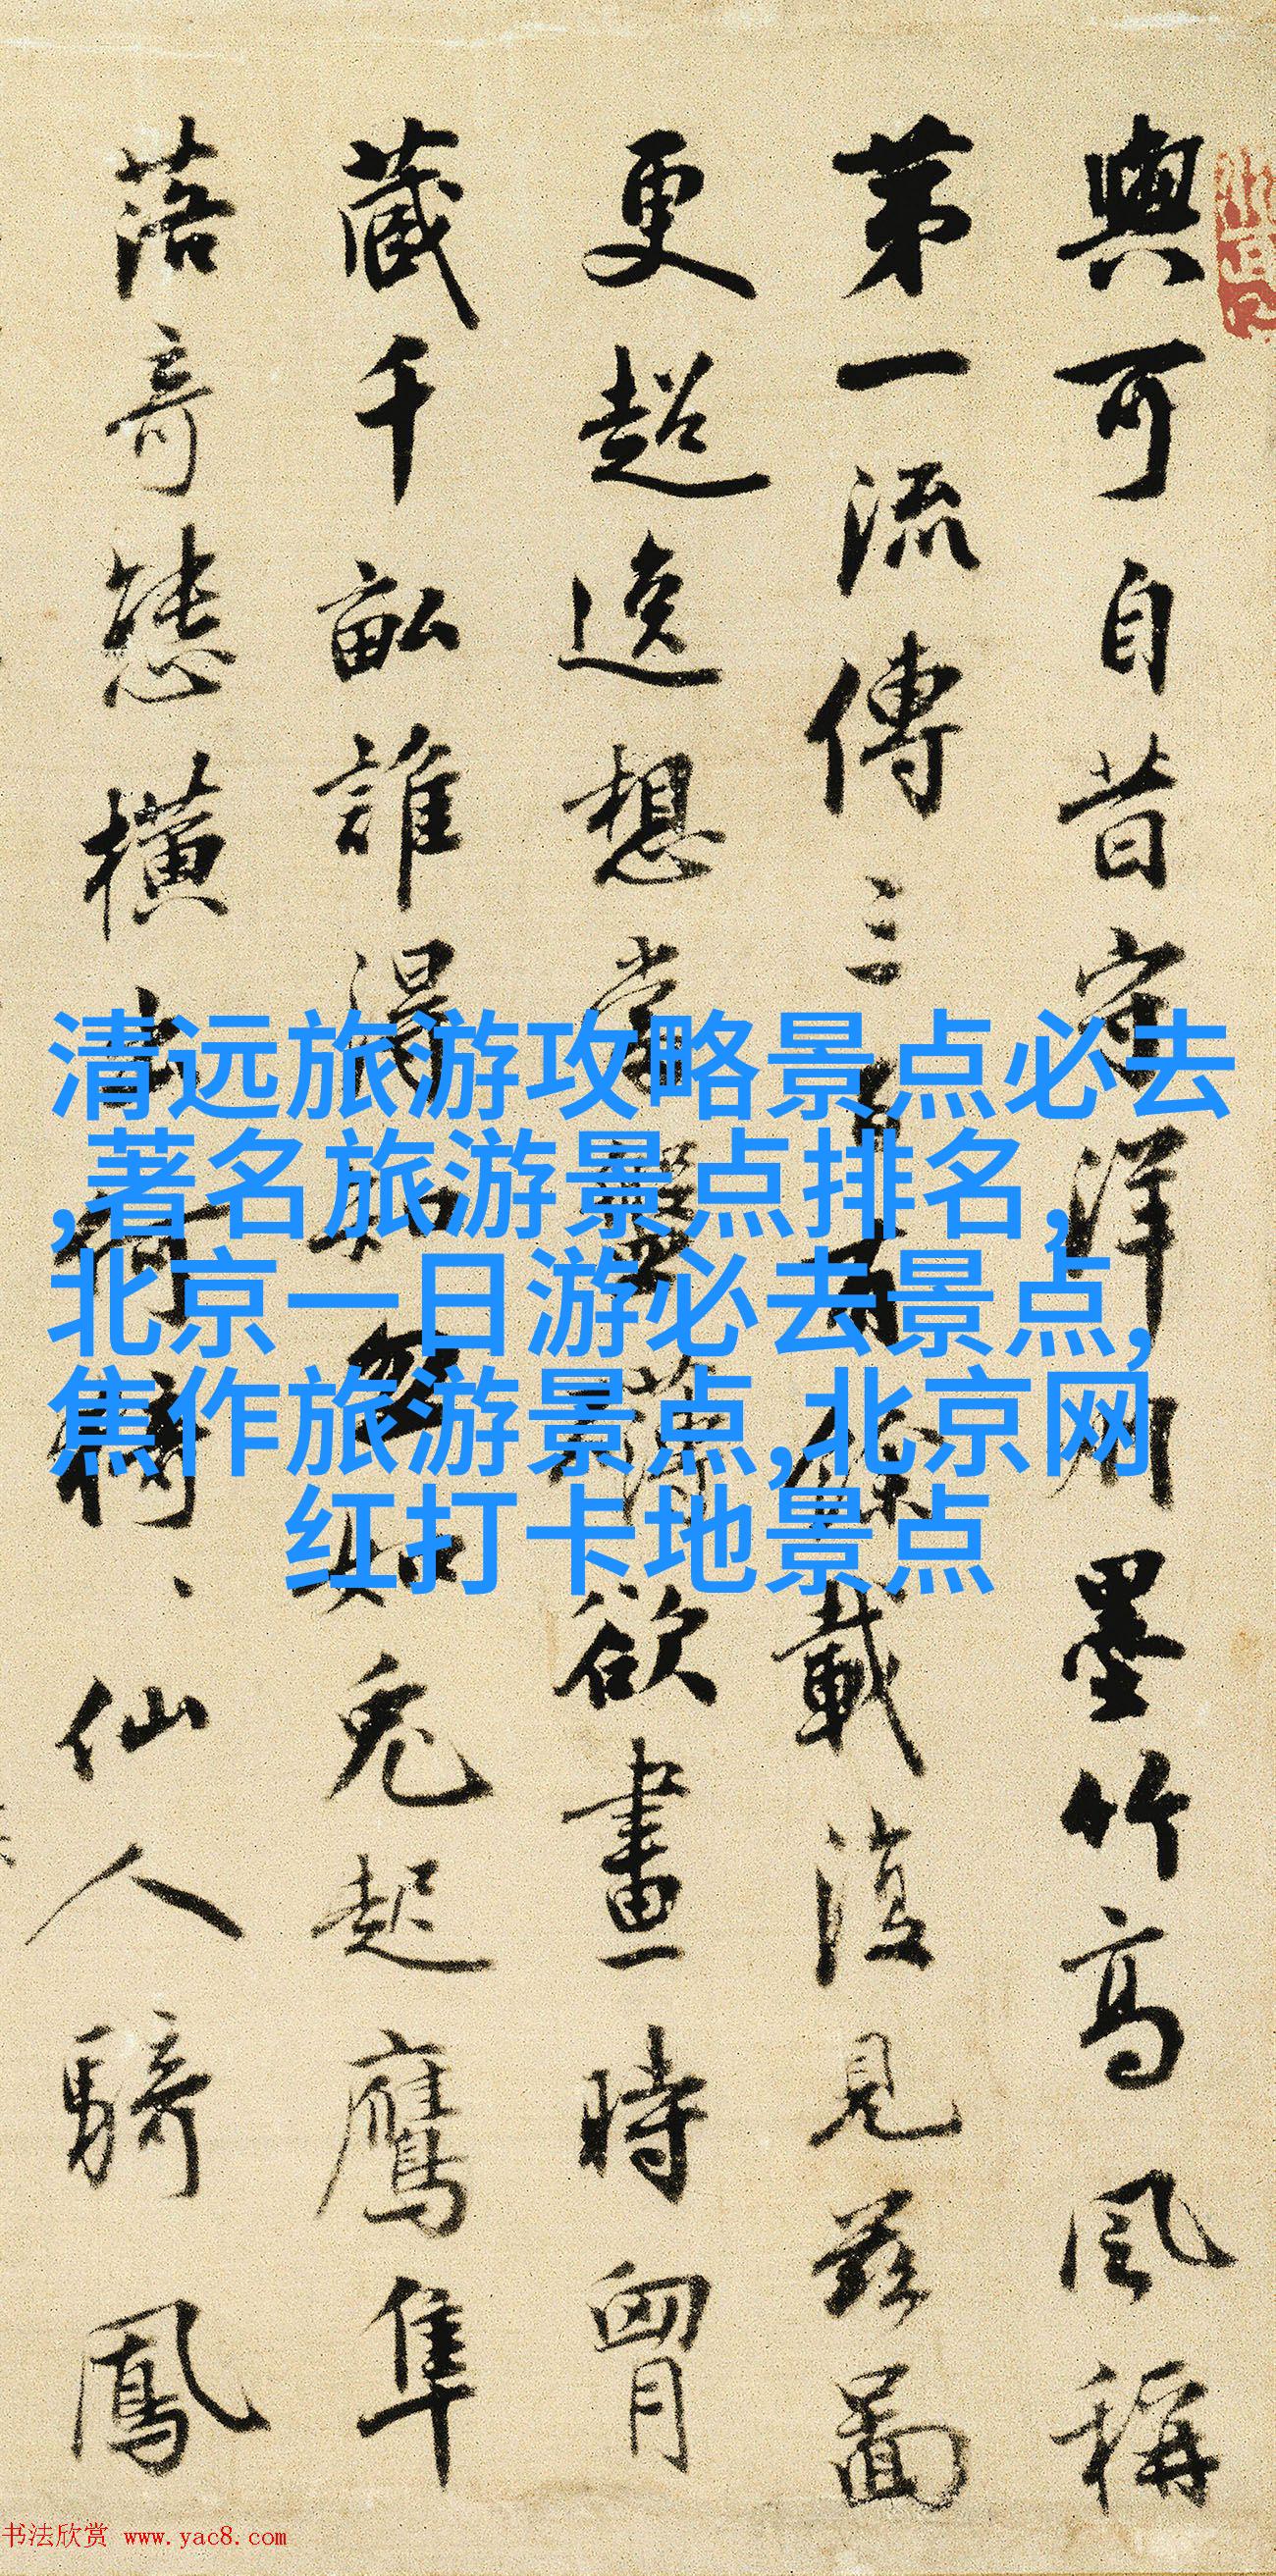 與可自昔守洋州墨竹高風稱
苐一流傳三百有餘載復見茲圖
更超逸想當盤薄欲畫時胷
藏千畝誰得知忽如兔起鷹隼
落奇態橫出何猗猗、仙人騎鳳
清远旅游攻略景点必去
,著名旅游景点排名,
北京一日游必去景点,
焦作旅游景点,北京网
红打卡地景点
书法欣赏 www.yac8.com